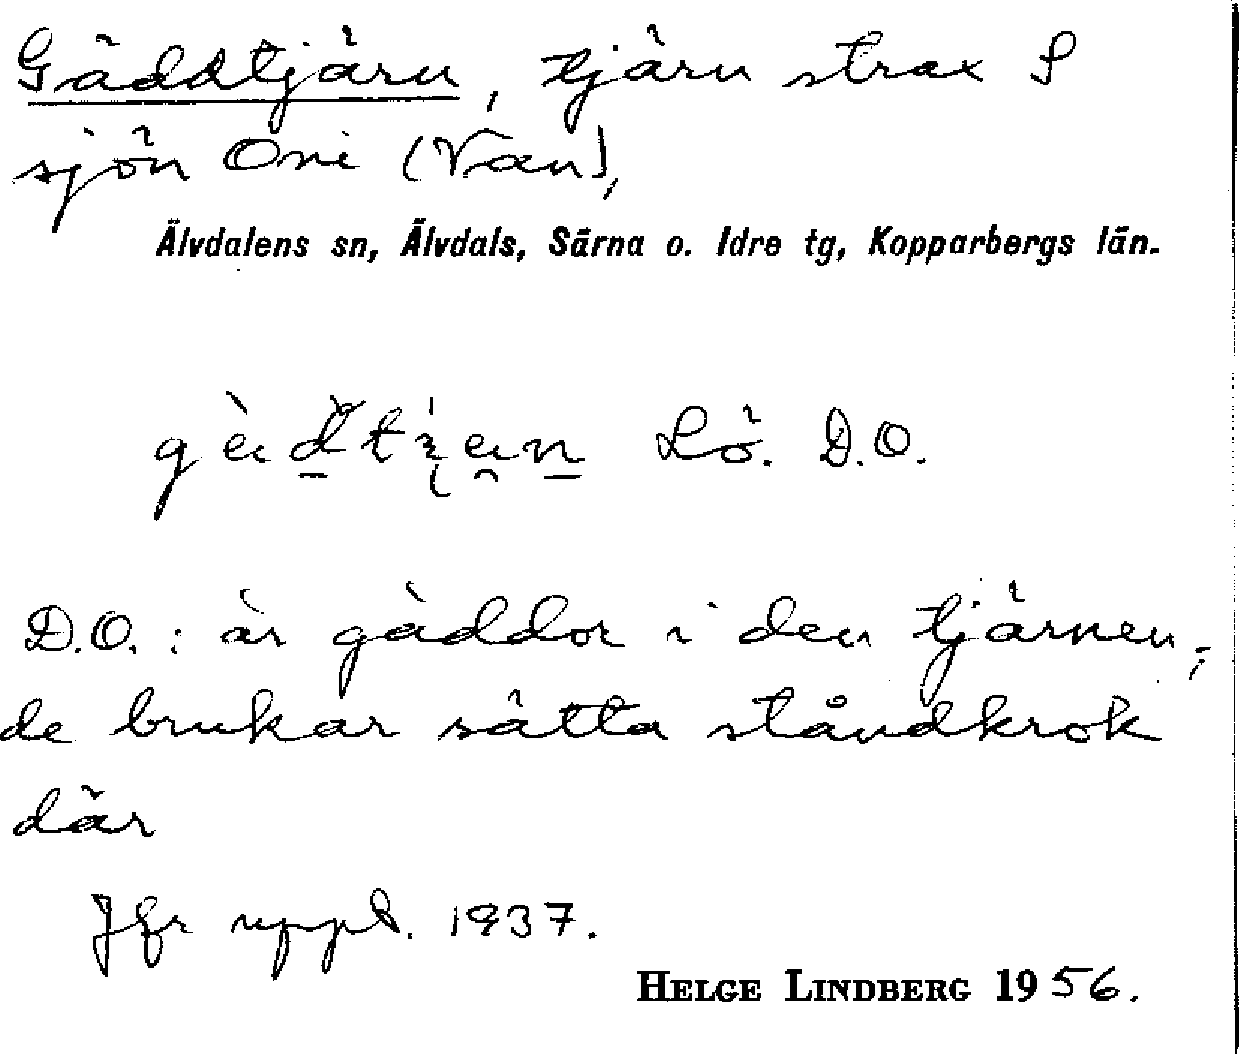 Gäddtjärn, tjärn strax S
sjön Oni (Van),
Älvdalens sn, Älvdals, Särna o. Idre tg, Kopparbergs län.
Lö. D.O.
D.O. : är gäddor i den tjärnen,
de brukar sätta ståndkrok
där
Jfr uppt. 1937.
HELGE LINDBERG 1956.